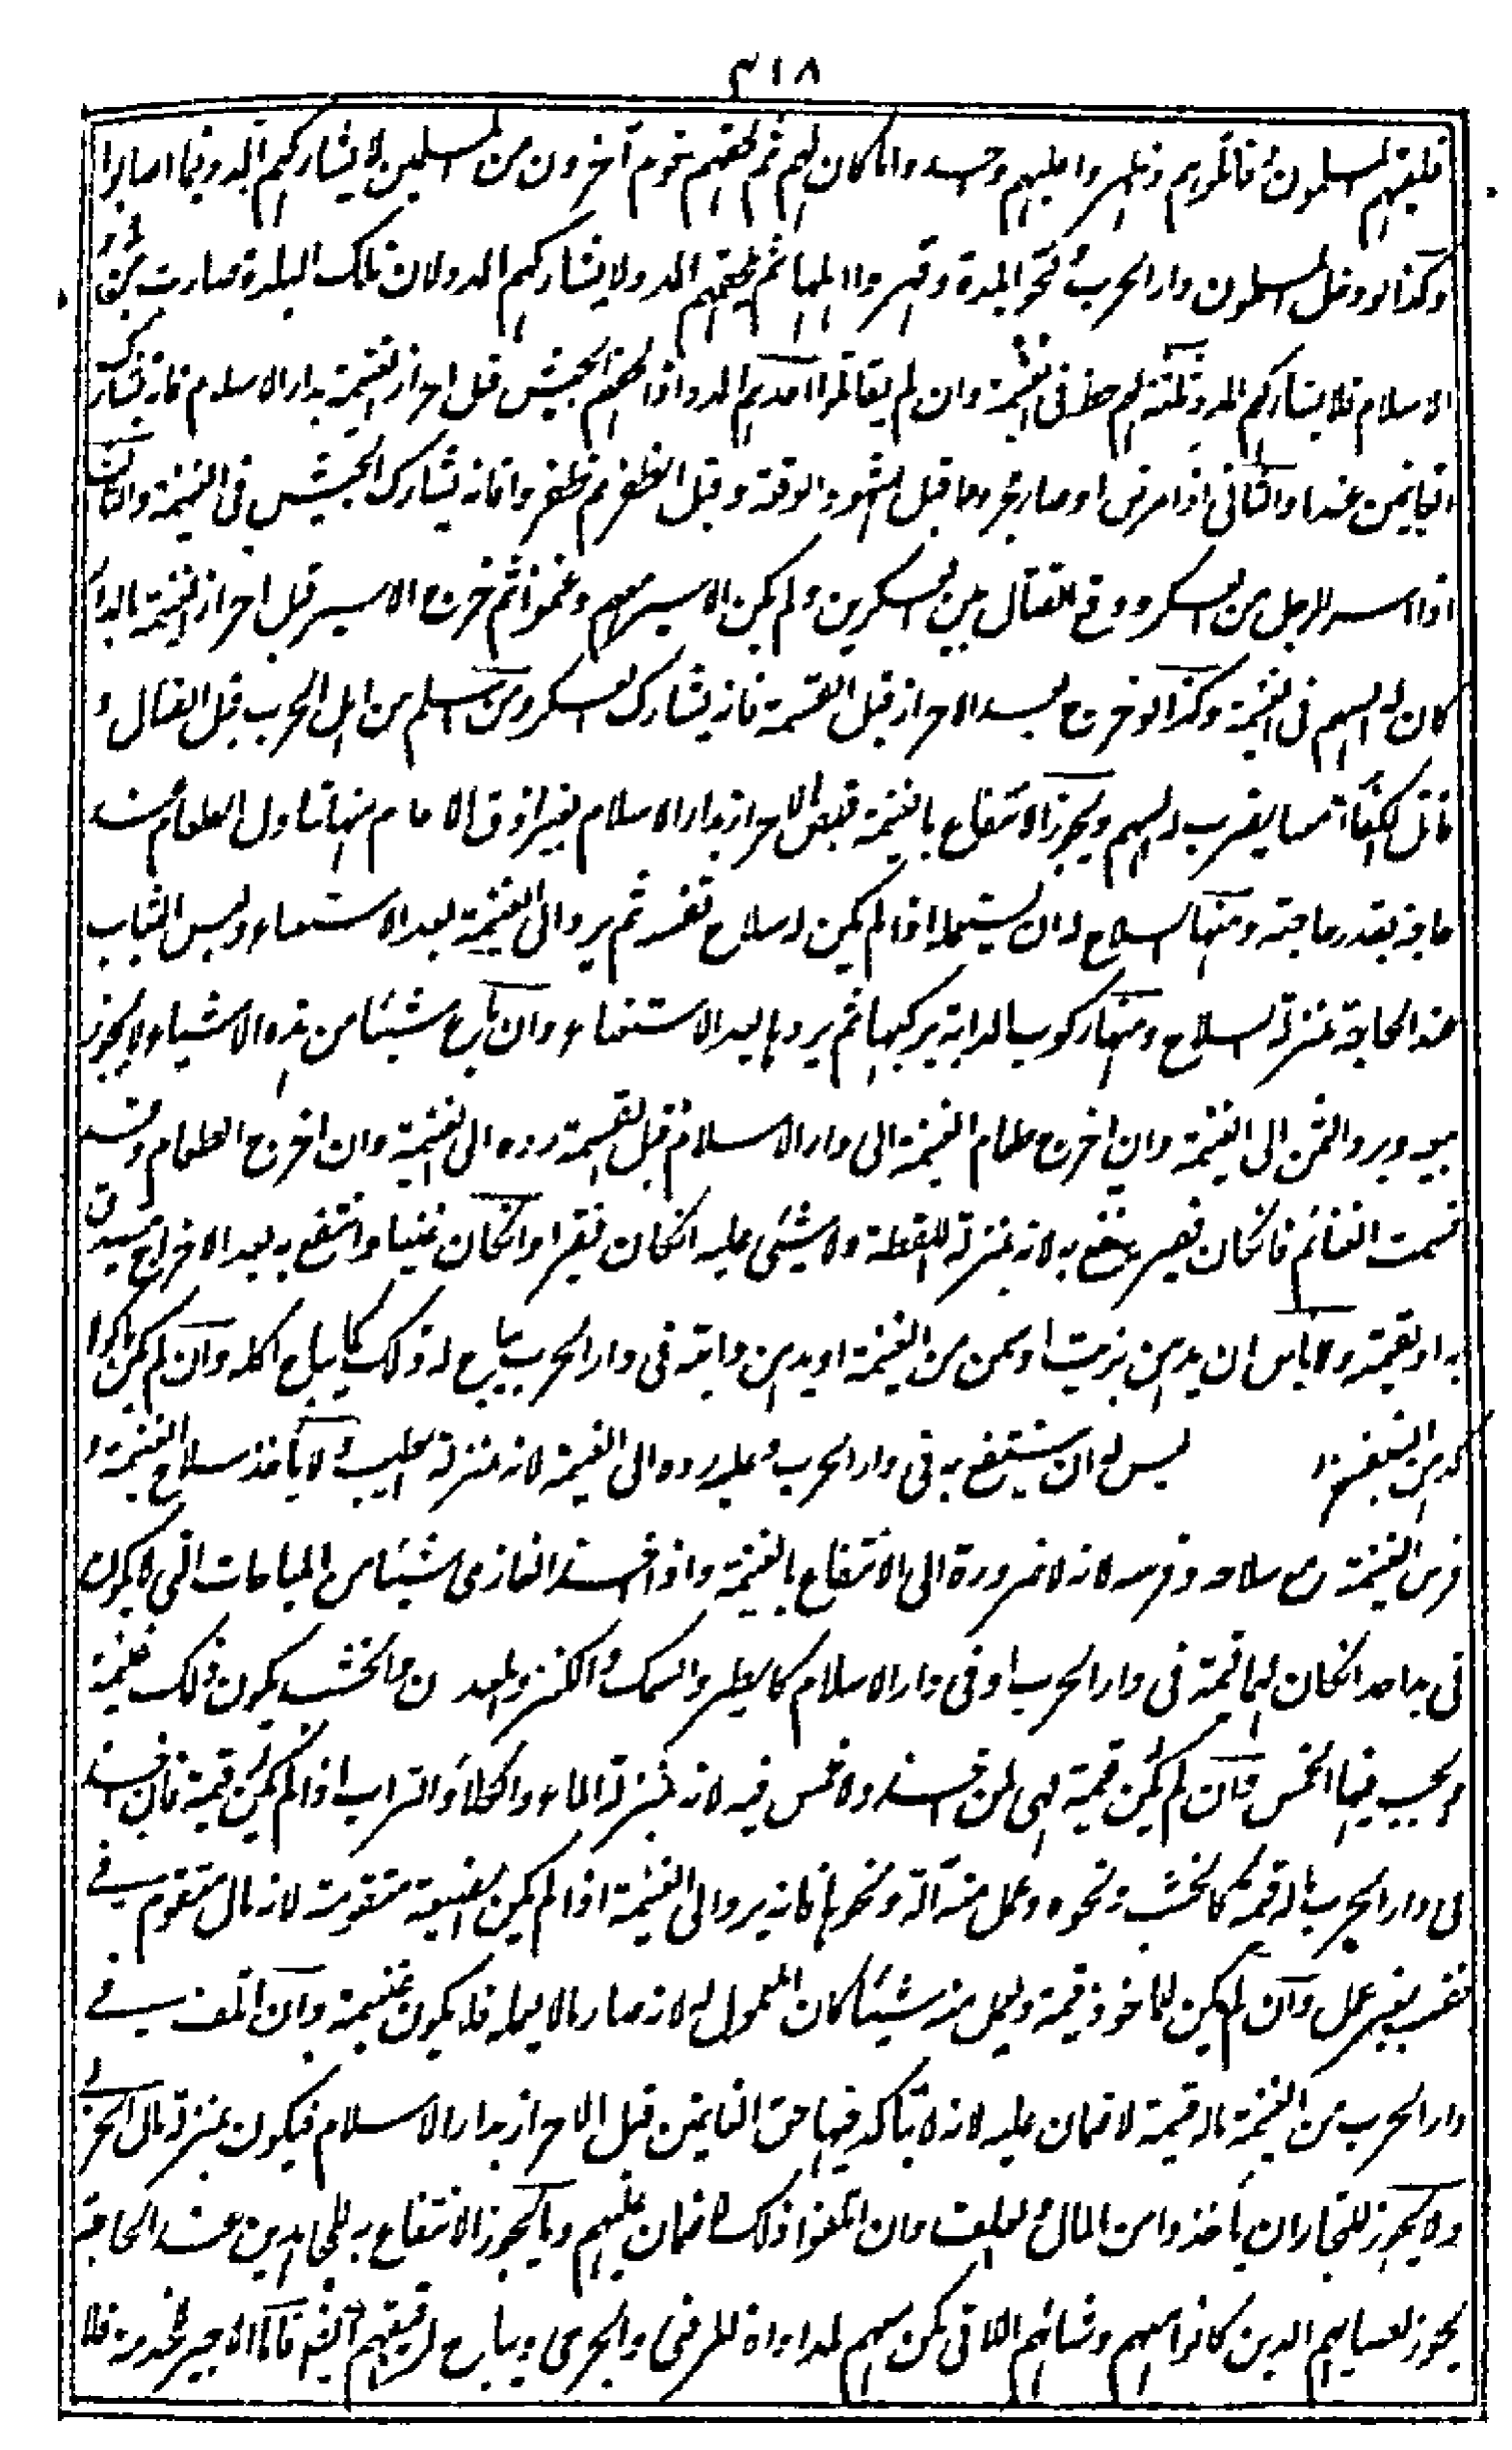 ٣١٨
فلقيهم المسلمون فقاتلوهم وظهروا عليهم وحـــد واما كان لهم ثم لحقهم قوم آخرون من المسلمين لا يشاركهم المدد فيما اصابوا
وكذا لو دخل المسلمون دار الحرب نحو البلدة وقهروا اهلها ثم لحقهم المدد ولا يشاركهم المدد لان تلك البلدة صارت
الاسلام فلا يشاركهم المدد وثلثة لهم حظ في الغنيمة وان لم يقاتلوا احدهم المدد واذا لحقهم الجيش قبل احراز الغنيمة بدار الاسلام فانه يشارك
الغانمين عندنا والثاني اذا مرض او صار مجروحا قبل شهود الوقعة وقبل الظفر ثم ظفروا فانه يشارك الجيش في الغنيمة والثالث
اذا اسر الرجل من العسكر ووقع القتال بين العسكرين ولم يكن الاسير معهم وغنموا ثم خرج الاسير قبل احراز الغنيمة بالدار
كان له السهم في الغنيمة وكذا لو خرج بعد الاحراز قبل القسمة فانه يشارك العسكر ومن اسلم من اهل الحرب قبل القتال و
قاتل الكفار معنا يضرب له السهم ويجوز الانتفاع بالغنيمة قبل الاحراز بدار الاسلام بغير اذن الامام منها تناول الطعام عند
حاجة بقدر حاجته ومنها السلاح له ان يستعمله اذا لم يكن له سلاح نفسه ثم يرد الى الغنيمة بعد الاستغناء ولبس الثياب
عند الحاجة بمنزلة السلاح ومنها ركوب الدابة يركبها ثم يردها بعد الاستغناء وان باع شيئا من هذه الاشياء لا يجوز
بيعه ويرد الثمن الى الغنيمة وان اخرج طعام الغنيمة الى دار الاسلام قبل القسمة رده الى الغنيمة وان اخرج الطعام وقد
قسمت الغنائم فان كان فقير ينتفع به لانه بمنزلة اللقطة ولا شيئ عليه انكان فقيرا وانكان غنيا وانتفع به بعد الاخراج تصدق
به او بقيمته ولا باس ان يدهن بزيت او سمن من الغنيمة او يدهن دابته في دار الحرب يباح له ذلك كما يباح اكله وان لم يكن ماكولا
كدهن البنفسج ليس له ان ينتفع به في دار الحرب وعليه رده الى الغنيمة لانه بمنزلة الطيب ولا ياخذ سلاح الغنيمة و
فرس الغنيمة مع سلاحه وفرسه لانه لا ضرورة الى الانتفاع بالغنيمة واذا اخذ الغازي شيئا من المباحات التي لا يكون
في يد احد انكان لها قيمة في دار الحرب او في دار الاسلام كالطير والسمك والكنز والمعدن والخشب يكون ذلك غنيمة
ويجب فيها الخمس فان لم يكن قيمة فهي لمن اخذ ولا خمس فيه لانه بمنزلة الماء والكلاء والتراب اذا لم يكن قيمة فان اخذ
في دار الحرب ماله قيمة كالخشب ونحوه وعمل منه آلة ونحوها فانه يرد الى الغنيمة اذا لم يكن الصنعة متقومة لانه مال متقوم في
نفسه بغير عمل وان لم يكن للماخوذ قيمة ويعمل منه شيئا كان المعمول له لانه صار مالا بعمله فلا يكون غنيمة وان اتلف في
دار الحرب من الغنيمة ماله قيمة لا ضمان عليه لانه لا يتأكد فيها حق الغانمين قبل الاحراز بدار الاسلام فيكون بمنزلة مال الحربي
ولا يجوز للتجار ان ياخذوا من المال والعلف وان اتلفوا ذلك لا ضمان عليهم وما يجوز الانتفاع به للمجاهدين عند الحاجة
يجوز لصبيانهم الذين كانوا معهم ونسائهم اللاتي يكن معهم لمداواة المرضى والجرحى ويباح لرقيقهم فاما الاجير للخدمة فلا